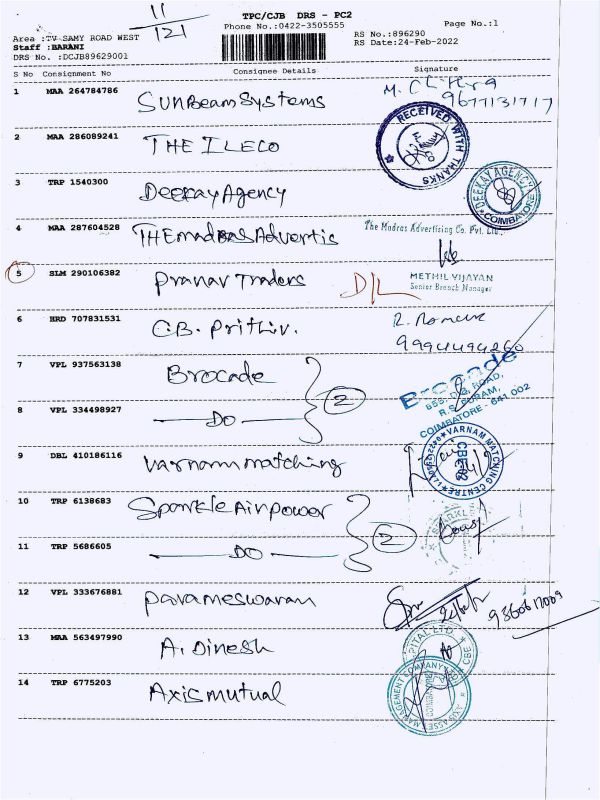 11
121
TPC/CJB DRS - PC2
Phone No.:0422-3505555
Page No.:1
Area :TV SAMY ROAD WEST
RS No.:896290
Staff :BARANI
RS Date:24-Feb-2022
DRS No. :DCJB89629001
S No Consignment No Consignee Details Signature
1 MAA 264784786 SunBeam Systems
9677131717
RECEIVED WITH THANKS
2 MAA 286089241 THE ILECO
3 TRP 1540300 Deekay Agency
DEEKAY AGENCY COIMBATORE
4 MAA 287604528 THE madras Advertis
The Madras Advertising Co. Pvt. Ltd.,
5 SLM 290106382 Pranav Traders D/L
METHIL VIJAYAN
Senior Branch Manager
6 HRD 707831531 C.B. Prithiv.
9994494260
7 VPL 937563138 Brocade
Brocade
R.S. PURAM,
COIMBATORE - 641 002
8 VPL 334498927 DO 2
9 DBL 410186116 Varnam matching
VARNAM MATCHING CENTRE
CBE-2
10 TRP 6138683 Sparkle Airpower
11 TRP 5686605 DO 2
12 VPL 333676881 Parameswaran
13 MAA 563497990 A. Dinesh
14 TRP 6775203 Axis mutual